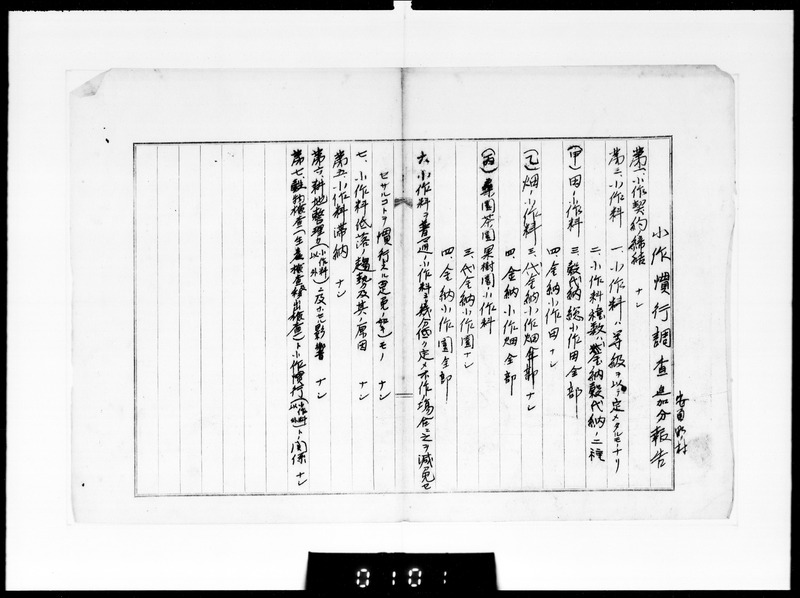 小作慣行調査追加分報告
村
第一、小作契約締結 ナシ
第二、小作料 一、小作料ハ等級ヲ以テ定メタルモノナリ
二、小作料種類ハ金納穀代納ノ二種
(甲)田ノ小作料 三、穀代納総小作田全部
四、金納小作田 ナシ
(乙)畑ノ小作料 三、代金納小作畑 ナシ
四、金納小作畑全部
(丙)桑園茶園果樹園小作料
三、代金納小作園ナシ
四、金納小作園全部
六、小作料ヲ普通ノ小作料ヨリ幾分低ク定メ不作ノ場合ニ之ヲ減免セ
ザルコトヲ慣行スル 如キモノ ナシ
七、小作料低落ノ趨勢及其ノ原因 ナシ
第五、小作料滞納 ナシ
第六、耕地整理ノ(小作料以外)ニ及ボセル影響 ナシ
第七、穀物検査(生産検査移出検査)ト小作慣行(小作料以外)トノ関係 ナシ
0101